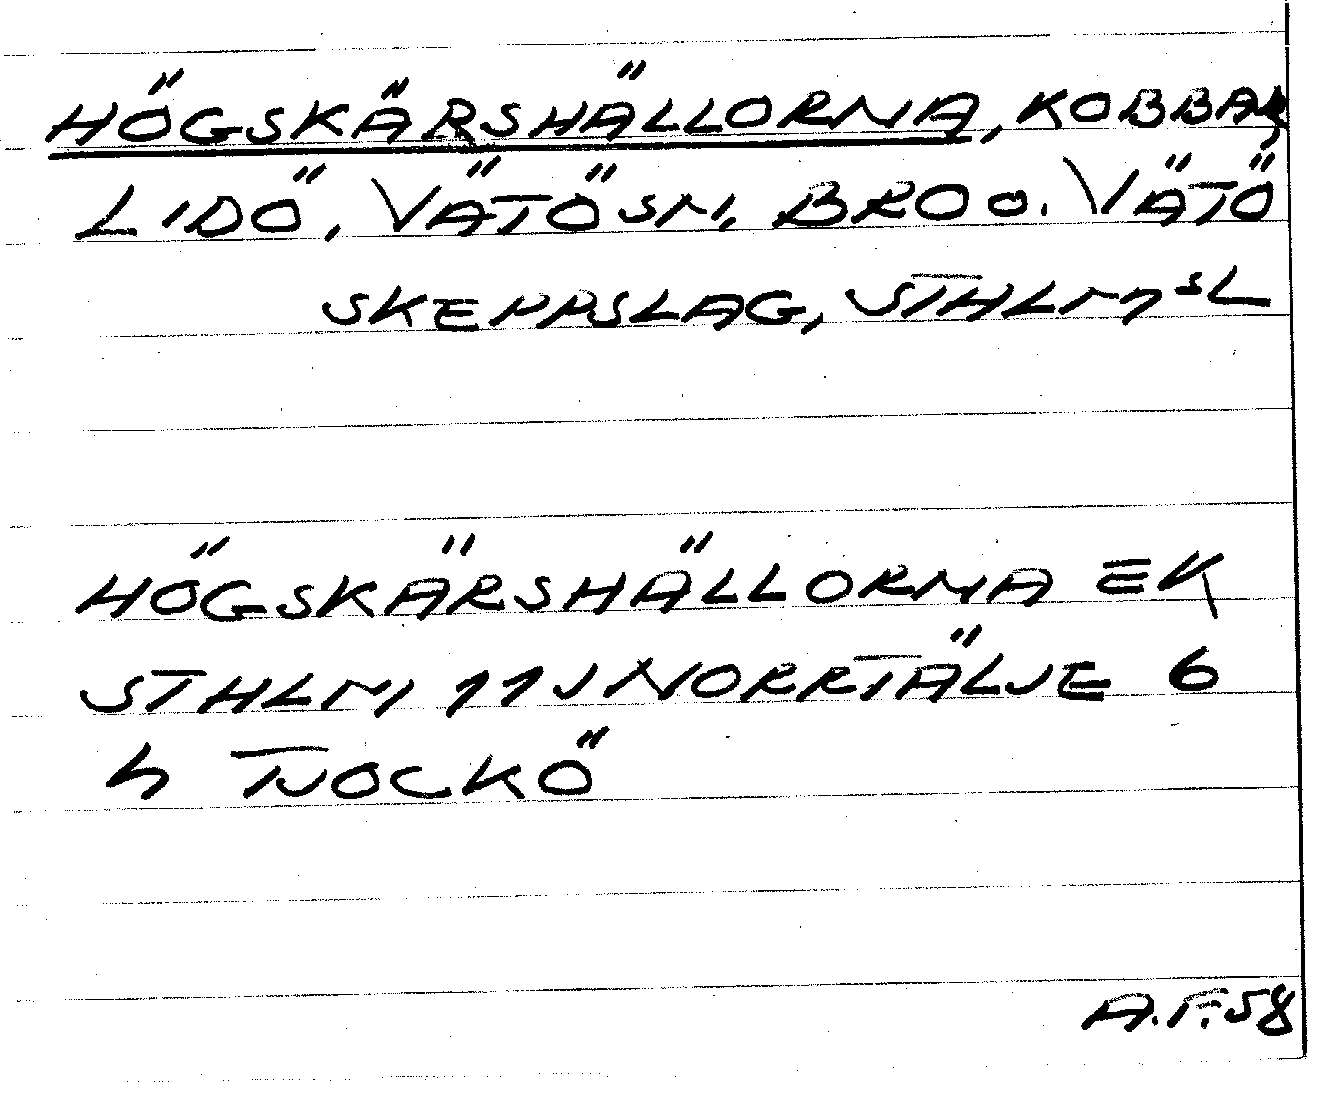 HÖGSKÄRSHÄLLORNA, KOBBAR,
LIDÖ, VÄTÖSN, BRO O. VÄTÖ
SKEPPSLAG, STHLMSL
HÖGSKÄRSHÄLLORNA EK
STHLM 11J NORRTÄLJE 6
h TJOCKÖ
A.F.58